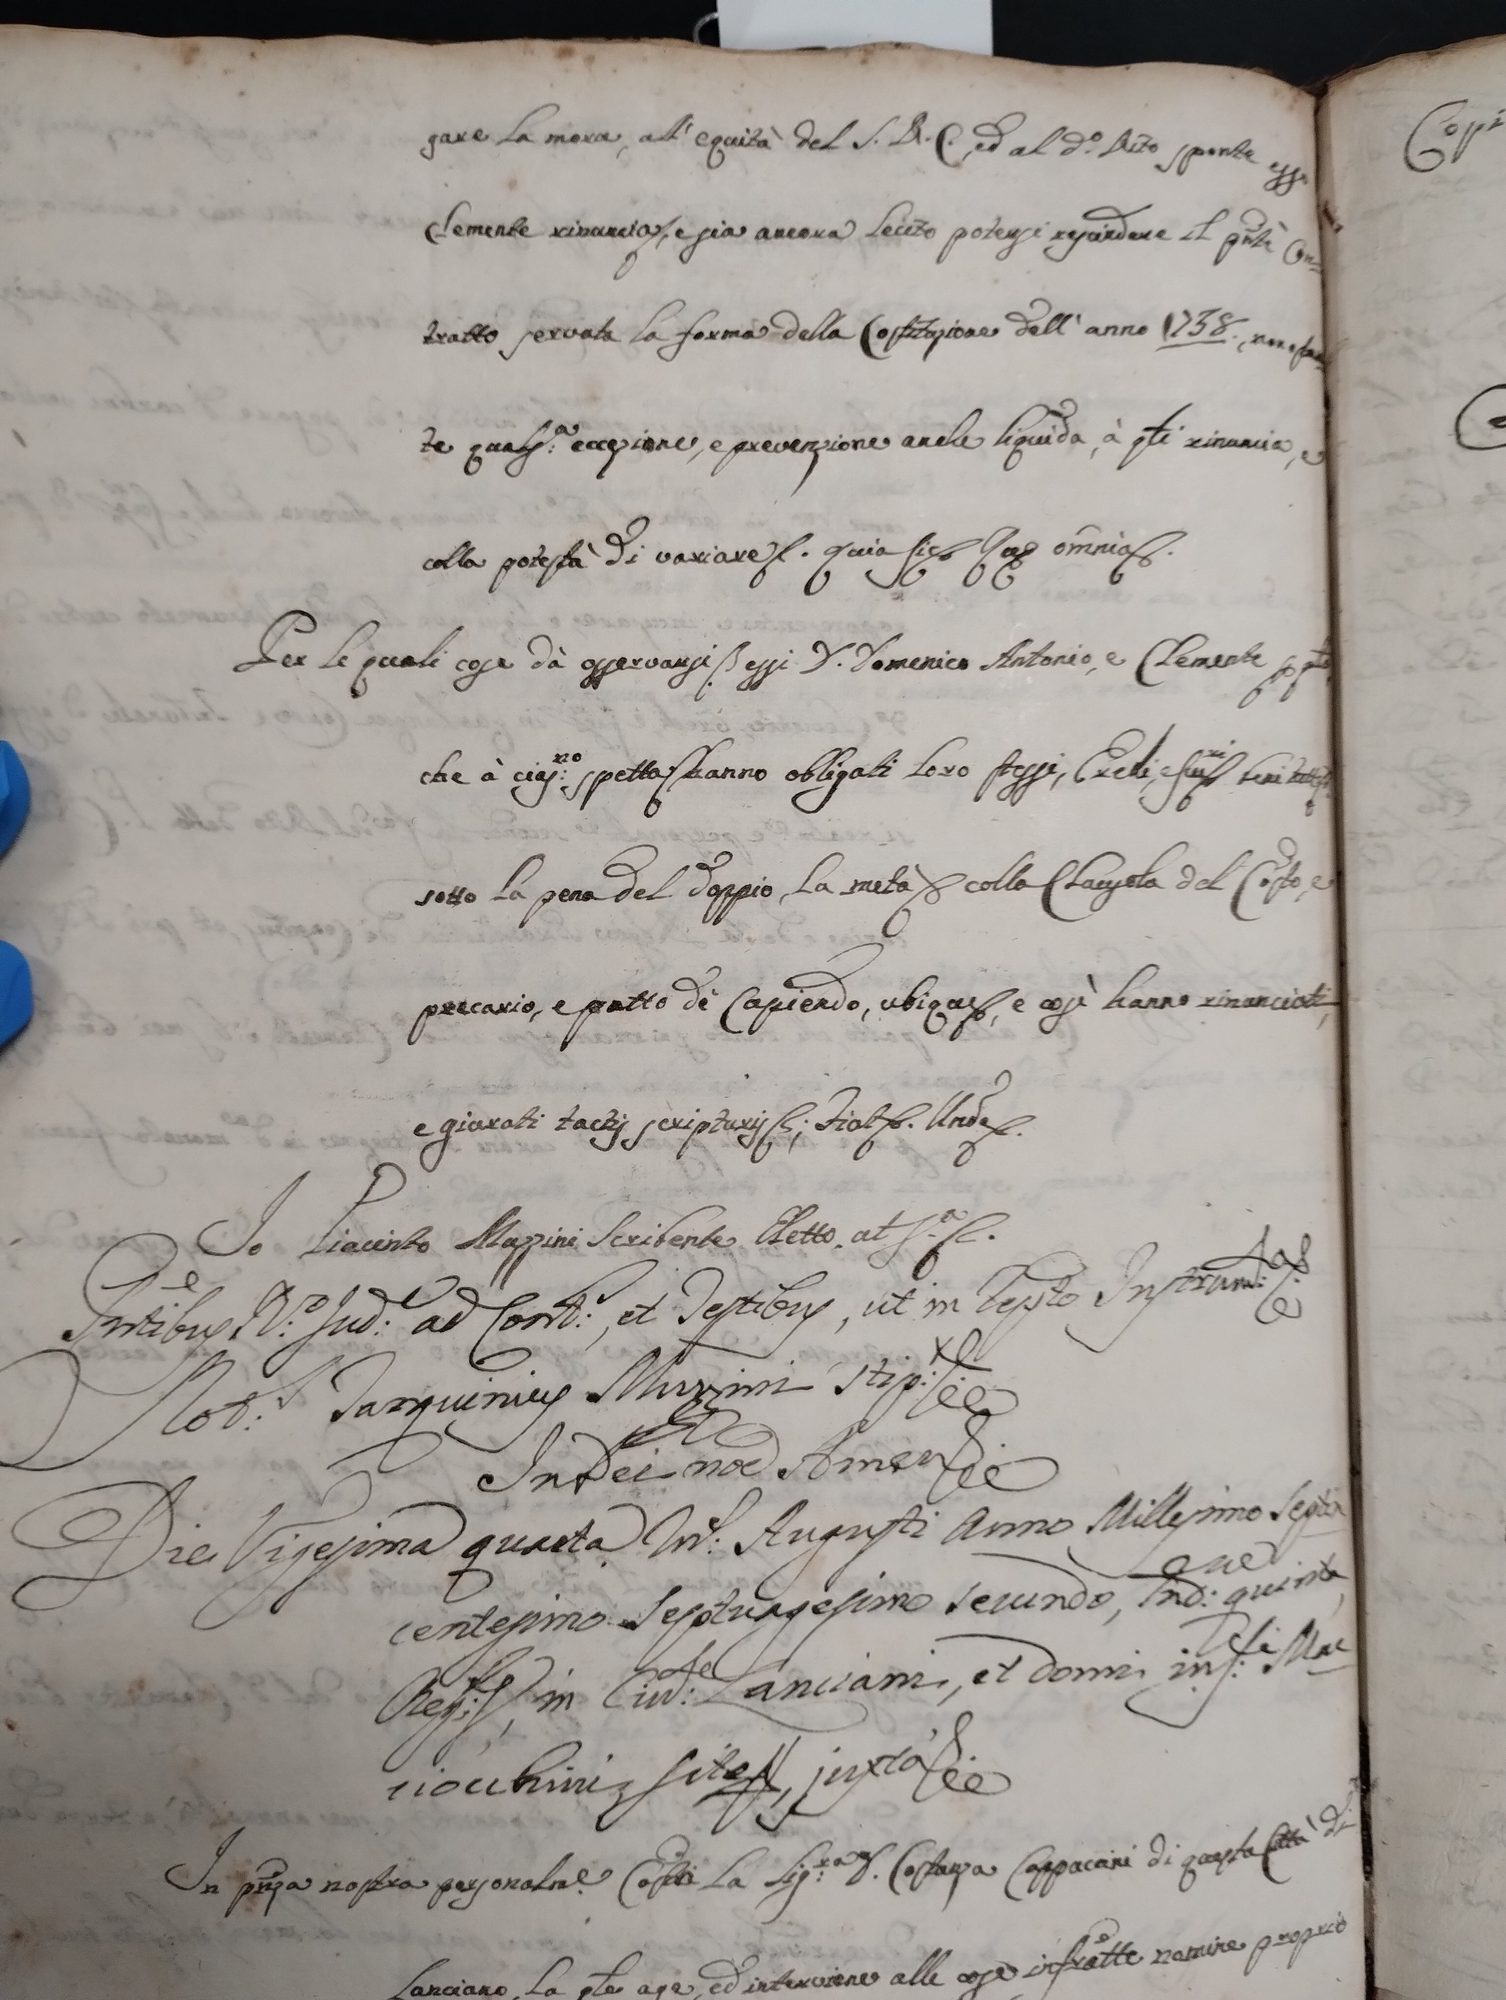 gare la mora, all' equità del S. R. C., ed al do. Rito sponte esso
Clemente rinuncia, e sia ancora lecito potersi rescindere il pnte Con-
tratto servata la forma della Costituzione dell' anno 1738., nonostan-
te qualsa. eccezione, e prevenzione anche liquida, à qti rinuncia, e
colla potestà di variare. quia sic Quae omnia.
Per le quali cose dà osservarsi essi D. Domenico Antonio, e Clemente
che à ciasno. spetta hanno obligati loro stessi, Eredi, e beni tutti
sotto la pena del doppio, la metà colla Clausola del Costo., e
precario, e patto dè Capiendo, ubique, e così hanno rinunciati,
e giurati tactis scripturis; Fiat. Unde.
Io Giacinto Mazzini Scribente Eletto at sa.
Pntibus Ro. Jud: ad Cont:, et Testibus, ut in Texto Instrum:
Not: Tarquinius Muzzini stip:
In Dei noe Amen
Die Vigesima quarta Ms: Augusti Anno Millesimo Septin
centesimo Septuagesimo secundo, Ind: quinta,
Reg:, in Civte: Lanciani, et domi insti: Mac
ciocchini sitae, juxtà
In pnza nostra personalme. Costi. la Sigra. D. Costanza Cappacini di questa Città di
Lanciano, la qle age, ed interviene alle cose infratte nomine proprio